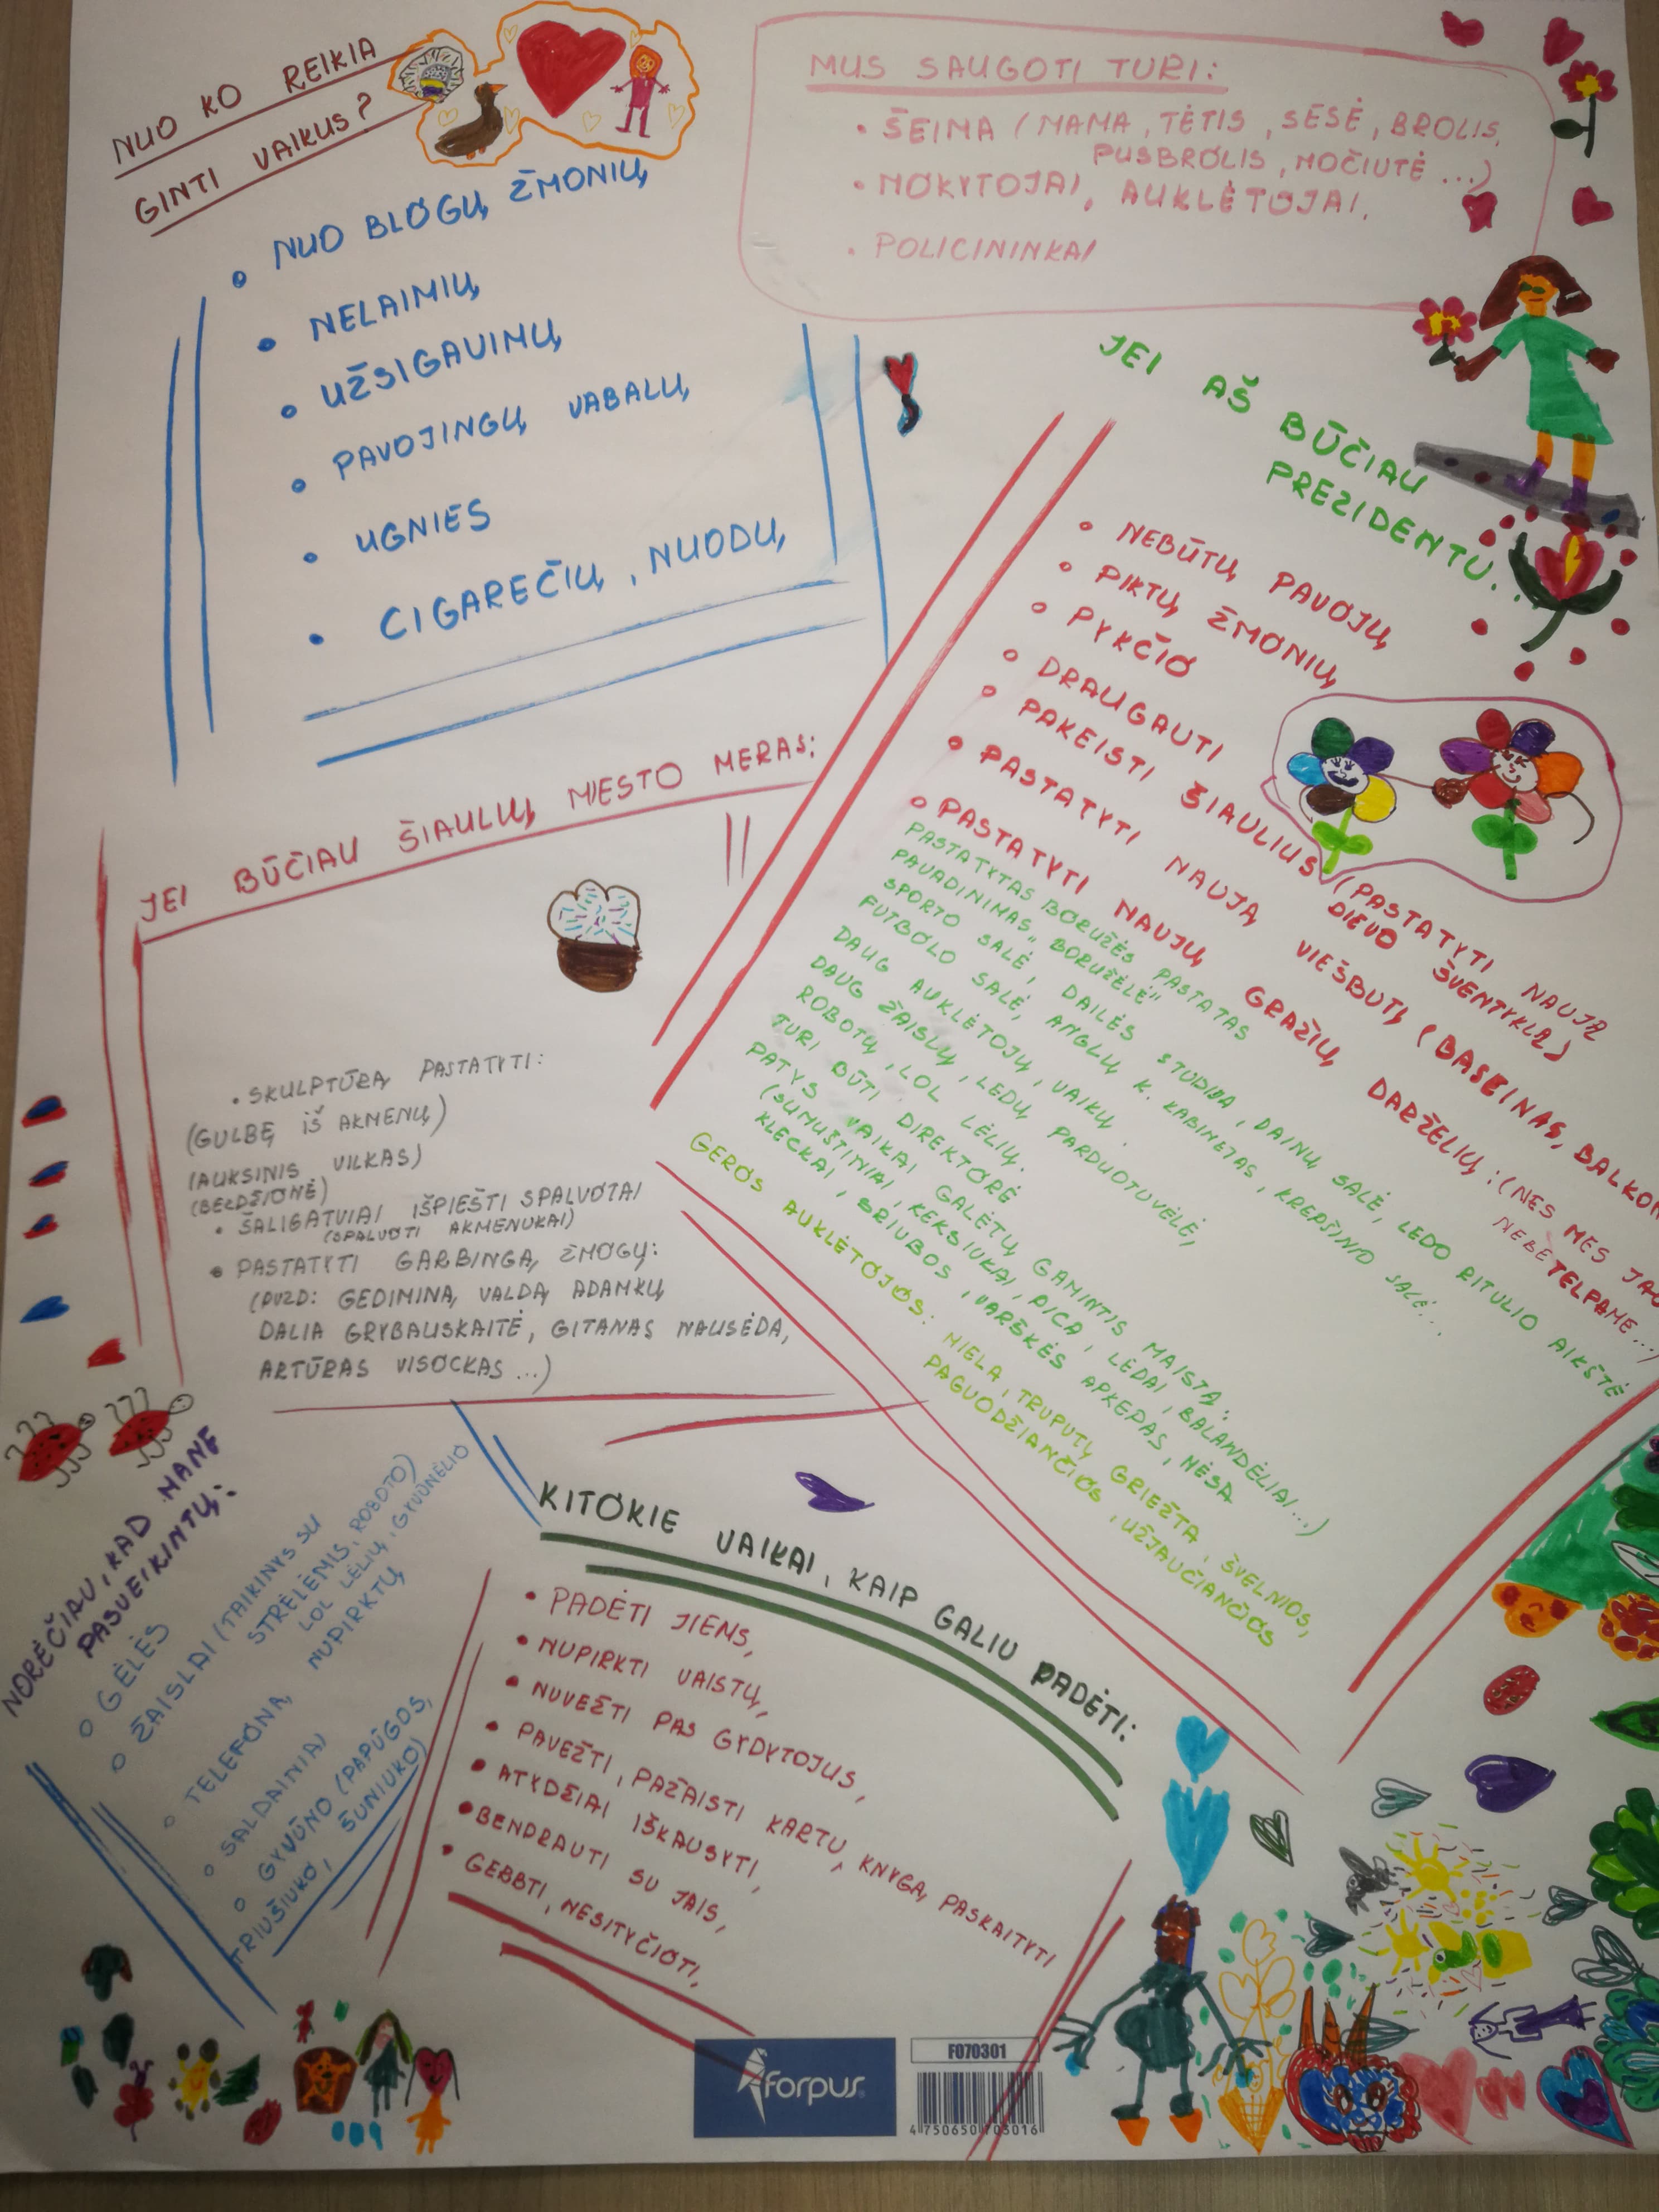 NUO KO REIKIA
GINTI VAIKUS?
• NUO BLOGŲ ŽMONIŲ
• NELAIMIŲ
• UŽSIGAVIMŲ
• PAVOJINGŲ VABALŲ
• UGNIES
• CIGAREČIŲ, NUODŲ
MUS SAUGOTI TURI:
• ŠEIMA (MAMA, TĖTIS, SESĖ, BROLIS,
PUSBROLIS, MOČIUTĖ ...)
• MOKYTOJAI, AUKLĖTOJAI.
• POLICININKAI
JEI AŠ BŪČIAU
PREZIDENTU...
• NEBŪTŲ PAVOJŲ
• PIKTŲ ŽMONIŲ
• PYKČIO
• DRAUGAUTI
• PAKEISTI ŠIAULIUS (PASTATYTI NAUJĄ
DIEVO ŠVENTYKLĄ)
• PASTATYTI NAUJĄ VIEŠBUTĮ (BASEINAS,
• PASTATYTI NAUJŲ GRAŽIŲ DARŽELIŲ: (NES MES
NEBETELPAME...)
PASTATYTAS BORUŽĖS PASTATAS
PAVADINIMAS „BORUŽĖLĖ"
SPORTO SALĖ, DAILĖS STUDIJA, DAINŲ SALĖ, LEDO RITULIO AIKŠTĖ
FUTBOLO SALĖ, ANGLŲ K. KABINETAS, KREPŠINIO SALĖ...
DAUG AUKLĖTOJŲ, VAIKŲ.
DAUG ŽAISLŲ, LEDŲ PARDUOTUVĖLĖ,
ROBOTŲ, LOL LĖLIŲ.
TURI BŪTI DIREKTORĖ
PATYS VAIKAI GALĖTŲ GAMINTIS MAISTĄ:
(SUMUŠTINIAI, KEKSIUKAI, PICA, LEDAI, BALANDĖLIAI...)
KLECKAI, BRIUBOS, VARŠKĖS APKEPAS, MĖSA
GEROS AUKLĖTOJOS: MIELA, TRUPUTĮ GRIEŽTA, ŠVELNIOS,
PAGUODŽIANČIOS, UŽJAUČIANČIOS
JEI BŪČIAU ŠIAULIŲ MIESTO MERAS:
• SKULPTŪRĄ PASTATYTI:
(GULBĘ IŠ AKMENŲ)
(AUKSINIS VILKAS)
(BEŽDŽIONĖ)
• ŠALIGATVIAI IŠPIEŠTI SPALVOTAI
(SPALVOTI AKMENUKAI)
• PASTATYTI GARBINGĄ ŽMOGŲ:
(PVZD: GEDIMINĄ, VALDĄ ADAMKŲ
DALIA GRYBAUSKAITĖ, GITANAS NAUSĖDA,
ARTŪRAS VISOCKAS ...)
NORĖČIAU, KAD MANE
PASVEIKINTŲ:
○ GĖLĖS
○ ŽAISLAI (TAIKINYS SU
STRĖLĖMIS, ROBOTO)
LOL LĖLIŲ, GYVŪNĖLIO
NUPIRKTŲ
○ TELEFONĄ
○ SALDAINIAI
○ GYVŪNO (PAPŪGOS,
TRIUŠIUKO, ŠUNIUKO)
KITOKIE VAIKAI, KAIP GALIU PADĖTI:
• PADĖTI JIEMS,
• NUPIRKTI VAISTŲ,
• NUVEŽTI PAS GYDYTOJUS,
• PAVEŽTI, PAŽAISTI KARTU, KNYGĄ PASKAITYTI
• ATYDŽIAI IŠKAUSYTI,
• BENDRAUTI SU JAIS,
• GERBTI, NESITYČIOTI,
forpus
F070301
4 750650 703016